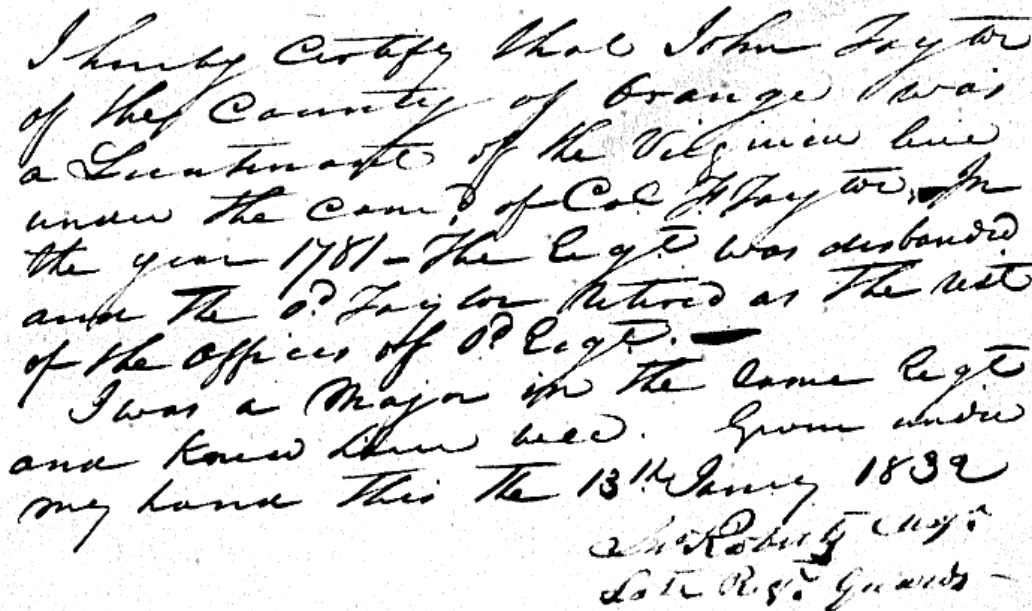 I hereby Certify that John Taylor
of the County of Orange was
a Lieutenant of the Virginia line
under the Comd. of Col. F. Taylor, In
the year 1781 – the Regt was disbanded
and the sd. Taylor retired as the rest
of the officers of sd Regt. —
I was a Major in the same Regt
and knew him well. Given under
my hand this the 13th Jany 1832
Jno Roberts Majr
Late Regt. Guards –